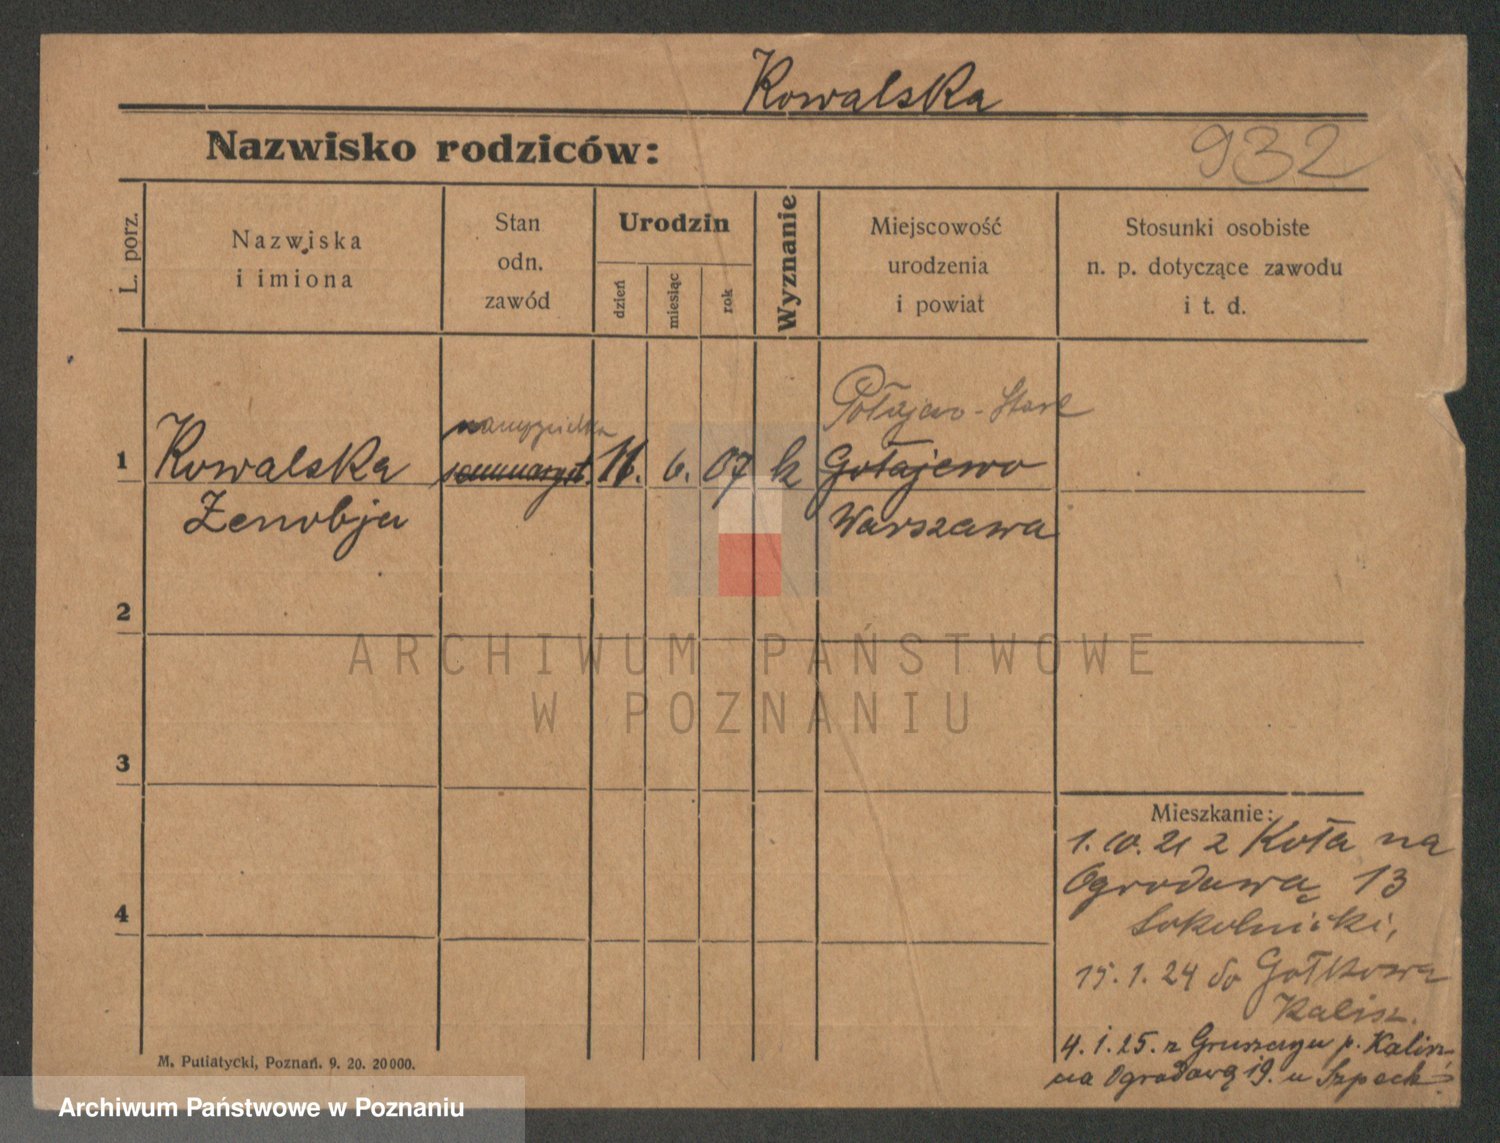 Kowalska
Nazwisko rodziców:
932
L. porz.
Nazwiska
i imiona
Stan
odn.
zawód
Urodzin
dzień
miesiąc
rok
Wyznanie
Miejscowość
urodzenia
i powiat
Stosunki osobiste
n. p. dotyczące zawodu
i t. d.
nauczycielka
Połajewo-Stare
1 Kowalska seminaryst. 11. 6. 07 k Gołajewo
Zenobja
Warszawa
2
3
4
Mieszkanie:
1.10.21 z Koła na
Ogrodową 13
Sokolnicki,
15.1.24 do
Kalisz.
4.1.25. z p. Kalisz,
na Ogrodową 19. u
M. Putiatycki, Poznań. 9. 20. 20000.
ARCHIWUM PAŃSTWOWE
W POZNANIU
Archiwum Państwowe w Poznaniu